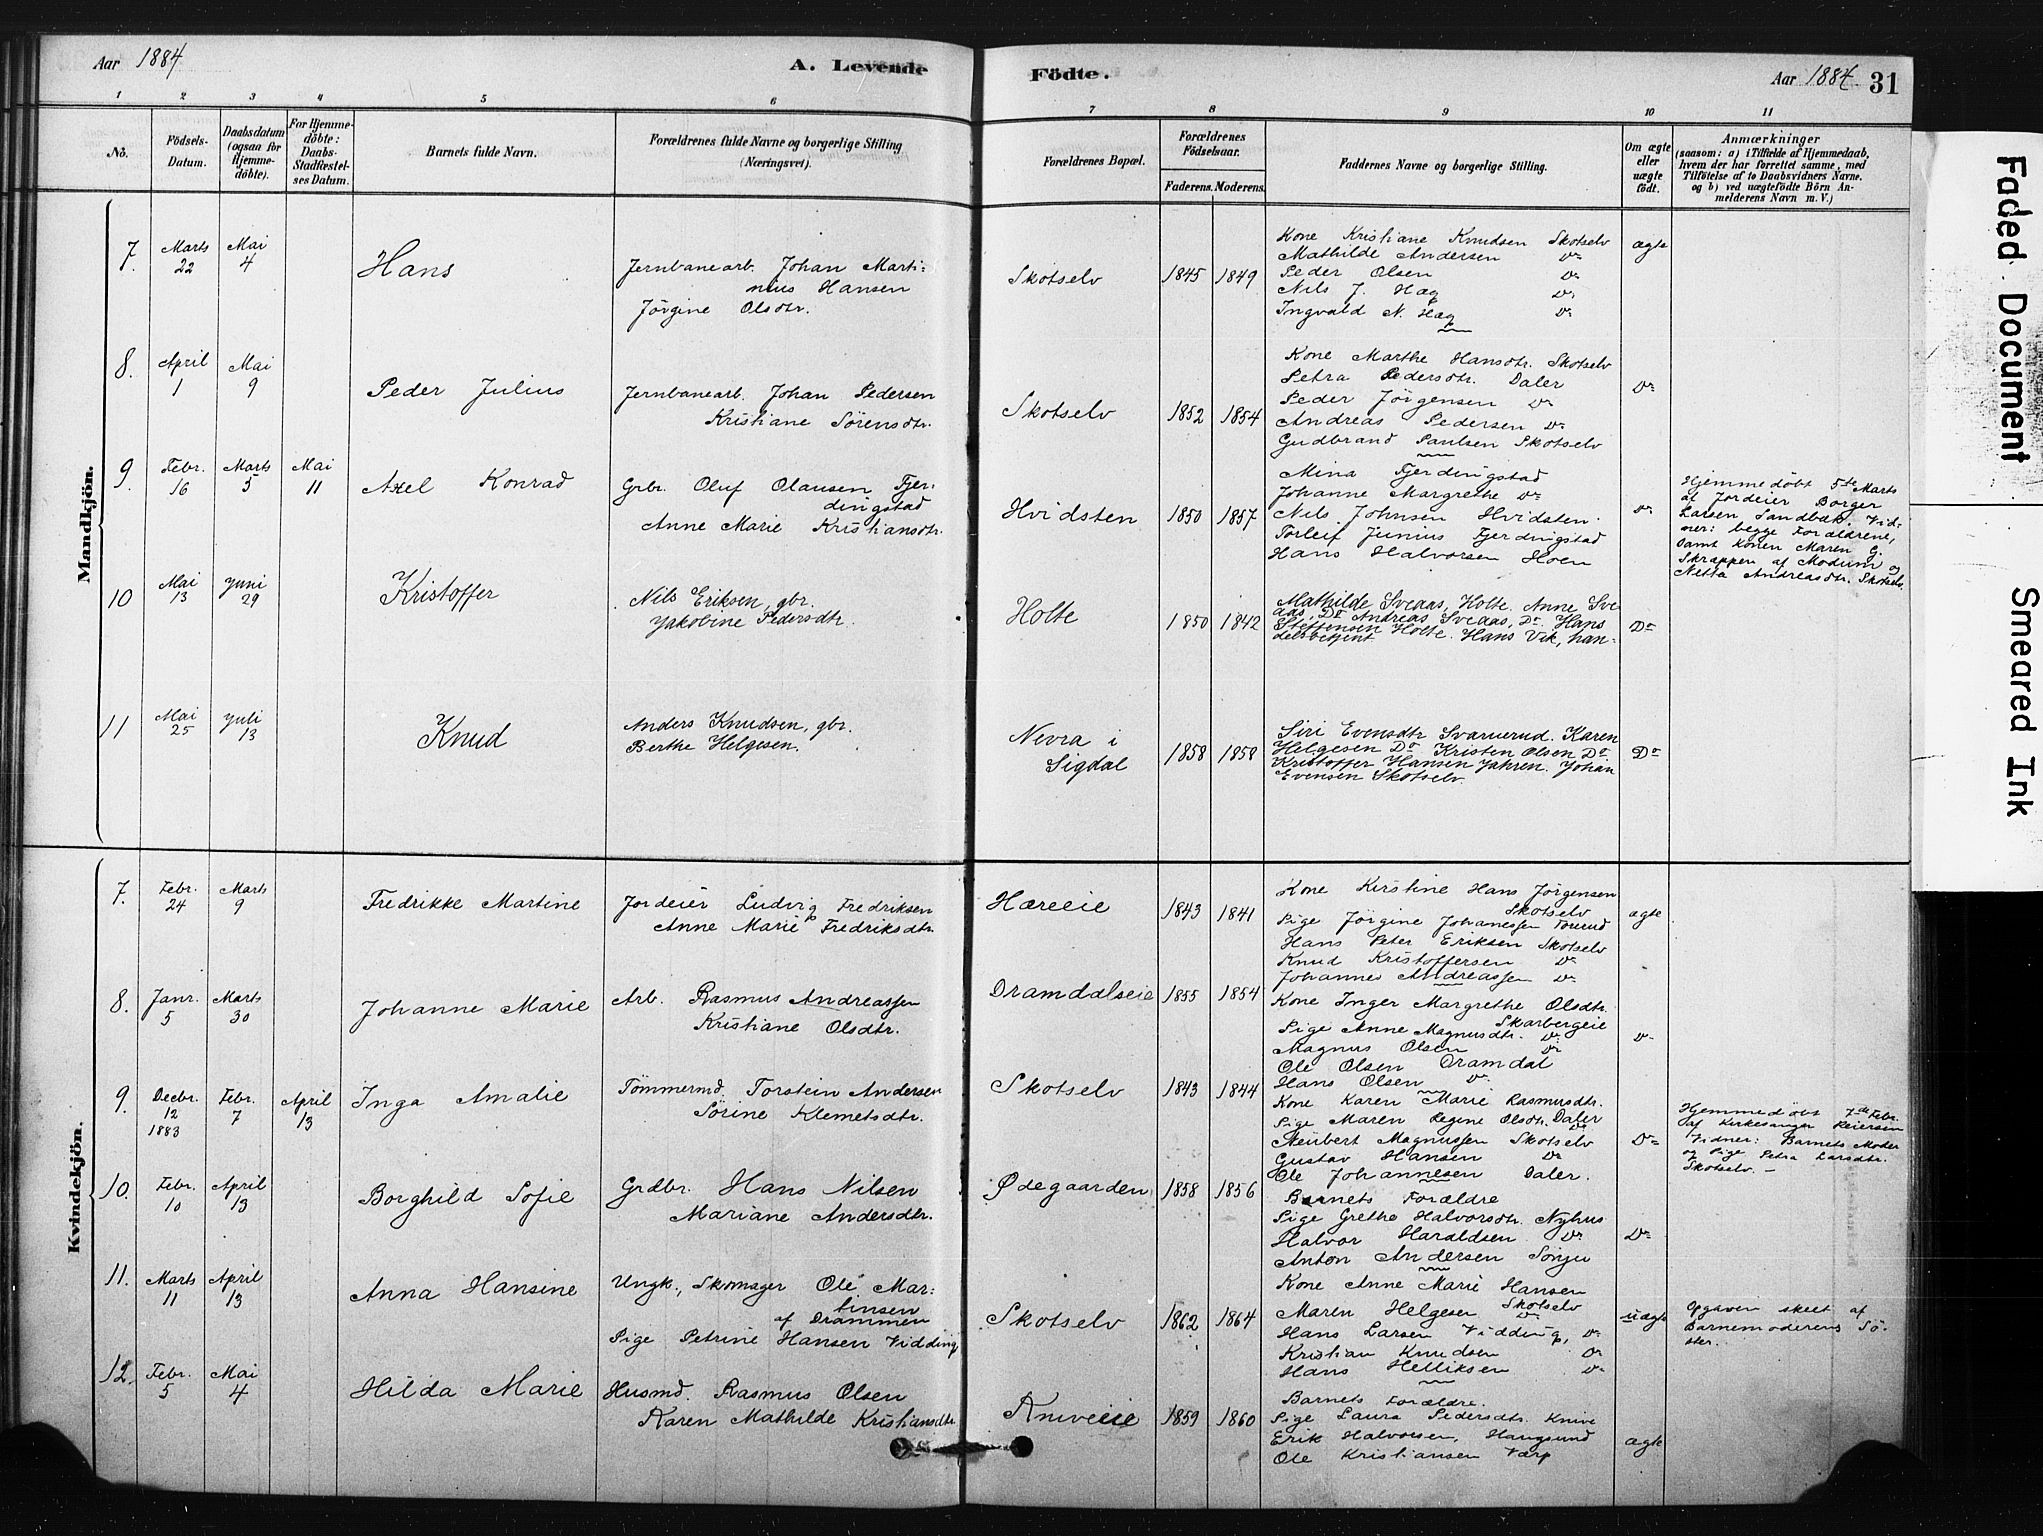 Aar 1884
A. Levende
Födte.
Aar 1884
31
1 2 3 4 5 6 7 8 9 10 11
No.
Födsels-
Datum.
Daabsdatum
(ogsaa for
Hjemme-
döbte).
For Hjemme-
döbte:
Daabs-
Stadfæstel-
ses Datum.
Barnets fulde Navn.
Forældrenes fulde Navne og borgerlige Stilling
(Næringsvei).
Forældrenes Bopæl.
Forældrenes
Födselsaar.
Faderens. Moderens.
Faddernes Navne og borgerlige Stilling.
Om ægte
eller
uægte
födt.
Anmærkninger
(saasom: a) i Tilfælde af Hjemmedaab,
hvem der har forrettet samme, med
Tilföielse af to Daabsvidners Navne.
og b) ved uægtefödte Börn An-
melderens Navn m. V.)
Mandkjön.
7.
Marts
22
Mai
4
Hans
Jernbanearb. Johan Marti=
nius Hansen
Jörgine Olsdtr.
Skotselv
1845
1849
Kone Kristiane Knudsen Skotselv
Mathilde Andersen Do
Peder Olsen Do
Nils J. Hæg Do
Ingvald N. Hæg Do
ægte
8.
April
1
Mai
9
Peder Julius
Jernbanearb. Johan Pedersen
Kristiane Sörensdtr.
Skotselv
1852
1854
Kone Marthe Hansdtr. Skotselv
Petra Pedersdtr. Daler
Peder Jörgensen Do
Andreas Pedersen Do
Gudbrand Paulsen Skotselv
Do
9.
Febr.
16
Marts
5
Mai
11
Axel Konrad
Grbr. Oluf Olausen Fjer=
dingstad
Anne Marie Kristiansdtr.
Hvidsten
1850
1857
Mina Fjerdingstad
Johanne Margrethe Do
Nils Johnsen Hvidsten.
Torleif Junius Fjerdingstad
Hans Halvorsen Hoen
Do
Hjemmedöbt 5te Marts
af Jordeier Borger
Larsen Sandbæk. Vid-
ner: begge Forældrene,
samt Konen Maren G.
Skrappen af Modum og
Netta Andreasdtr. Skotselv.
10
Mai
13
Juni
29
Kristoffer
Nils Eriksen, gbr.
Jakobine Pedersdtr.
Holte
1850
1842
Mathilde Sveaas, Holte. Anne Sve
aas, Do Andreas Sveaas, Do. Hans
Steffensen Holte. Hans Vik, han-
delsbetjent.
Do
11
Mai
25
Juli
13
Knud
Anders Knudsen, gbr.
Berthe Helgesen.
Nevra i
Sigdal
1858
1858
Siri Evensdtr Svarverud. Karen
Helgesen Do Kristen Olsen Do
Kristoffer Hansen Jahren. Johan
Evensen Skotselv.
Do
Kvindekjön.
7.
Febr.
24
Marts
9
Fredrikke Martine
Jordeier Ludvig Fredriksen
Anne Marie Fredriksdtr.
Hæreeie
1843
1841
Kone Kirstine Hans Jörgensen
Skotselv
Pige Jörgine Johanessen
Hans Peter Eriksen Skotselv
Knud Kristoffersen Do
Johannes Andreassen Do
ægte
8.
Janr.
5
Marts
30
Johanne Marie
Arb. Rasmus Andreassen
Kristiane Olsdtr.
Dramdalseie
1855
1854
Kone Inger Margrethe Olsdtr.
Skarbergeie
Pige Anne Magnusdtr. Do
Magnus Olsen Do
Ole Olsen Dramdal
Hans Olsen Do
Do
9.
Decbr.
12
1883
Febr.
7
April
13
Inga Amalie
Tömmermd. Torstein Andersen
Sörine Klemetsdtr.
Skotselv
1843
1844
Kone Karen Marie Rasmusdtr.
Pige Maren Regine Olsdtr. Daler
Magnussen Skotselv
Gustav Hansen Do
Ole Johannesen Daler.
Do
Hjemmedöbt 7de Febr.
af Kirkesanger Reiersen
Vidner: Barnets Moder
og Pige Petra Larsdtr.
Skotselv. -
10.
Febr.
10
April
13
Borghild Sofie
Grdbr. Hans Nilsen
Mariane Andersdtr.
Ødegaarden
1858
1856
Barnets Forældre
Pige Grethe Halvorsdtr. Nyhus
Halvor Haraldsen Do
Anton Andersen Sönju
Do
11.
Marts
11
April
13
Anna Hansine
Ungk., Skomager Ole Mar=
tinsen
af Drammen
Pige Petrine Hansen Vidding
Skotselv
1862
1864
Kone Anne Marie Hansen
Skotselv
Maren Helgesen Do
Hans Larsen Vidding, Do
Kristian Knudsen Do
Hans Helliksen Do
uægte
Opgaven skeet af
Barnemoderens Sö-
ster.
12.
Febr.
5
Mai
4
Hilda Marie
Husmd. Rasmus Olsen
Karen Mathilde Kristiansdtr.
Kniveeie
1859
1860
Barnets Forældre.
Pige Laura Pedersdtr. Knive
Erik Halvorsen, Haugsund
Ole Kristiansen Værp
ægte
Faded Document
Smeared Ink